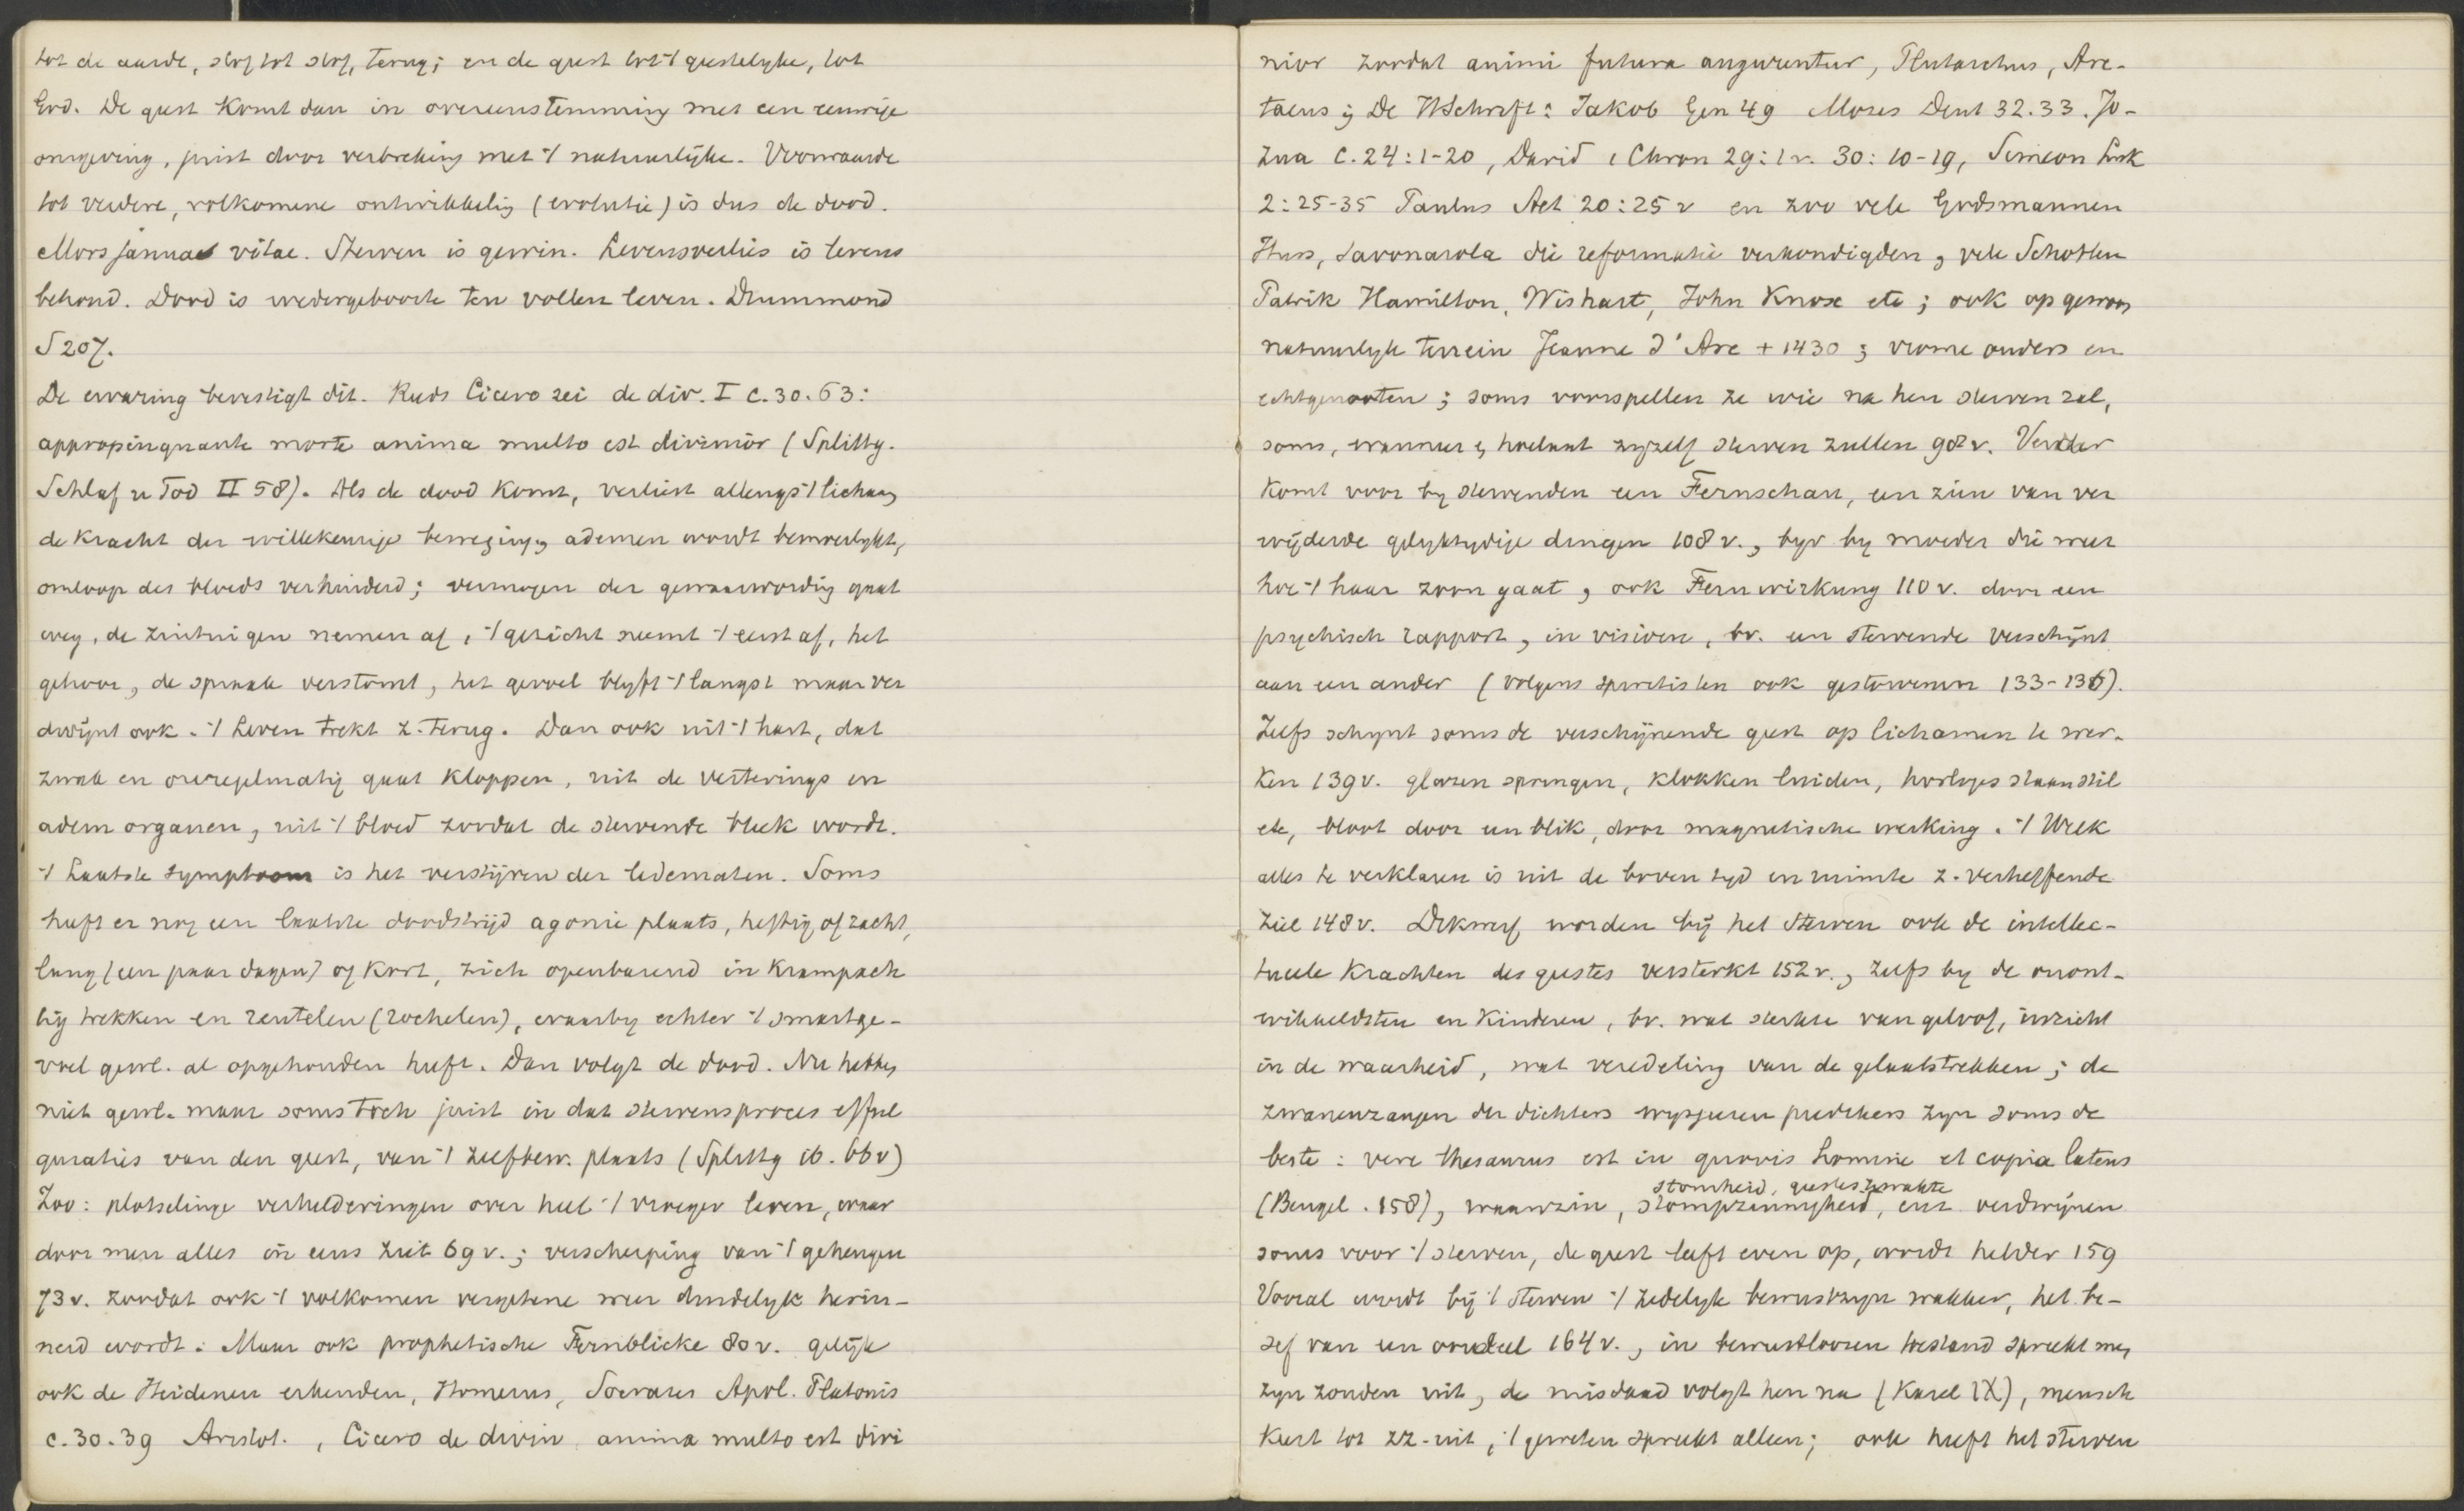 tot de aarde, stof tot stof, terug; en de geest tot 't geestelyke, tot
God. De geest komt dan in overeenstemming met een eeuwige
omgeving, juist door verbreking met 't natuurlijke. Voorwaarde
tot verdere, volkomene ontwikkelig (evolutie) is dus de dood.
Mors janua vitae. Sterven is gewin. Levensverlies is levens
behoud. Dood is wedergeboorte ten vollen leven. Drummond
S 207.
De ervaring bevestigt dit. Reeds Cicero zei de div. I c. 30. 63:
appropinquante morte anima multo est divinior (Splittg.
Schlaf u Tod II 58). Als de dood komt, verliest allengs 't lichaam
de kracht der willekeurige beweging, ademen wordt bemoeilykt,
omloop des bloeds verhinderd; vermogen der gewaarwordig gaat
weg, de zintuigen nemen af, 't gezicht neemt 't eerst af, het
gehoor, de spraak verstomt, het gevoel blyft 't langst maar ver
dwijnt ook. 't Leven trekt z. terug. Dan ook uit 't hart, dat
zwak en onregelmatig gaat kloppen, uit de verterings en
adem organen, uit 't bloed zoodat de stervende bleek wordt.
't Laatste symptoom is het verstijven der ledematen. Soms
heeft er nog een laatste doodstrijd agonie plaats, heftig of zacht,
lang (een paar dagen) of kort, zich openbarend in krampach
tig trekken en reutelen (rochelen), waarby echter 't smartge-
voel gewl. al opgehouden heeft. Dan volgt de dood. Nu hebben
niet gewl. maar soms toch juist in dat stervensproces efful
guraties van den geest, van 't zelfbew. plaats (Splittg ib. 66 v)
Zoo: plotselinge verhelderingen over heel 't vroeger leven, waar
door men alles in eens ziet 69 v.; verscherping van 't geheugen
73 v. zoodat ook 't volkomen vergetene weer duidelyk herin-
nerd wordt. Maar ook prophetische Fernblicke 80 v. gelijk
ook de Heidenen erkenden, Homerus, Socrates Apol. Platonis
c. 30. 39 Aristot., Cicero de divin. anima multo est divi
nior zoodat animi futura augurentur, Plutarchus, Are-
taeus; De HSchrift: Jakob Gen 49 Mozes Deut 32. 33. Jo-
zua C. 24: 1-20, David 1 Chron 29: 1 v. 30: 10-19, Simeon Luk
2: 25-35 Paulus Act 20: 25 v en zoo vele Godsmannen
Huss, Savonarola die reformatie verkondigden, vele Schotten
Patrik Hamilton, Wishart, John Knox etc; ook op gewoon
natuurlyk terrein Jeanne d'Arc + 1430; vrome ouders en
echtgenooten; soms voorspellen ze wie na hen sterven zal,
soms, wanneer & hoelaat zyzelf sterven zullen 98 v. Verder
komt voor by stervenden een Fernschau, een zien van ver
wijderde gelyktydige dingen 108 v., byv by moeder die weet
hoe 't haar zoon gaat, ook Fernwirkung 110 v. door een
psychisch rapport, in visioen, bv. een stervende verschijnt
aan een ander (volgens spiritisten ook gestorvenen 133-136).
Zelfs schynt soms de verschijnende geest op lichamen te wer-
ken 139 v. glazen springen, klokken luiden, horloges staan stil
etc, bloot door een blik, door magnetische werking. 't Welk
alles te verklaren is uit de boven tyd en ruimte z. verheffende
ziel 148 v. Dikwerf worden bij het sterven ook de intellec-
tueele krachten des geestes versterkt 152 v., zelfs by de onont-
wikkeldsten en kinderen, bv. wat sterkte van geloof, inzicht
in de waarheid, wat veredeling van de gelaatstrekken; de
zwanenzangen der dichters wysgeeren predikers zyn soms de
beste: vere thesaurus est in quovis homine et copia latens
(Bengel. 158), waanzin, stompzinnigheid, stomheid, geesteszwakte enz verdwijnen
soms voor 't sterven, de geest leeft even op, wordt helder 159
Vooral wordt bij 't sterven 't zedelyk bewustzyn wakker, het be-
sef van een oordeel 164 v., in bewustloozen toestand spreekt men
zyn zonden uit, de misdaad volgt hen na (Karel IX), mensch
keert tot zz- uit, 't geweten spreekt alleen; ook heeft het sterven